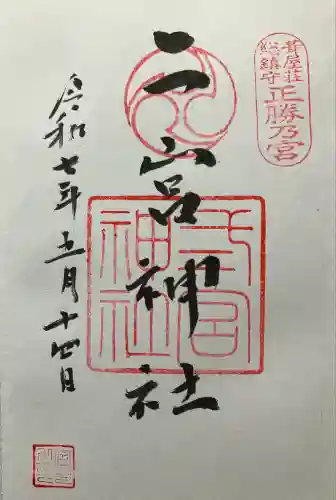 葺屋荘
総鎮守
正勝乃宮
二宮神社
二宮
神社
令和七年五月十四日